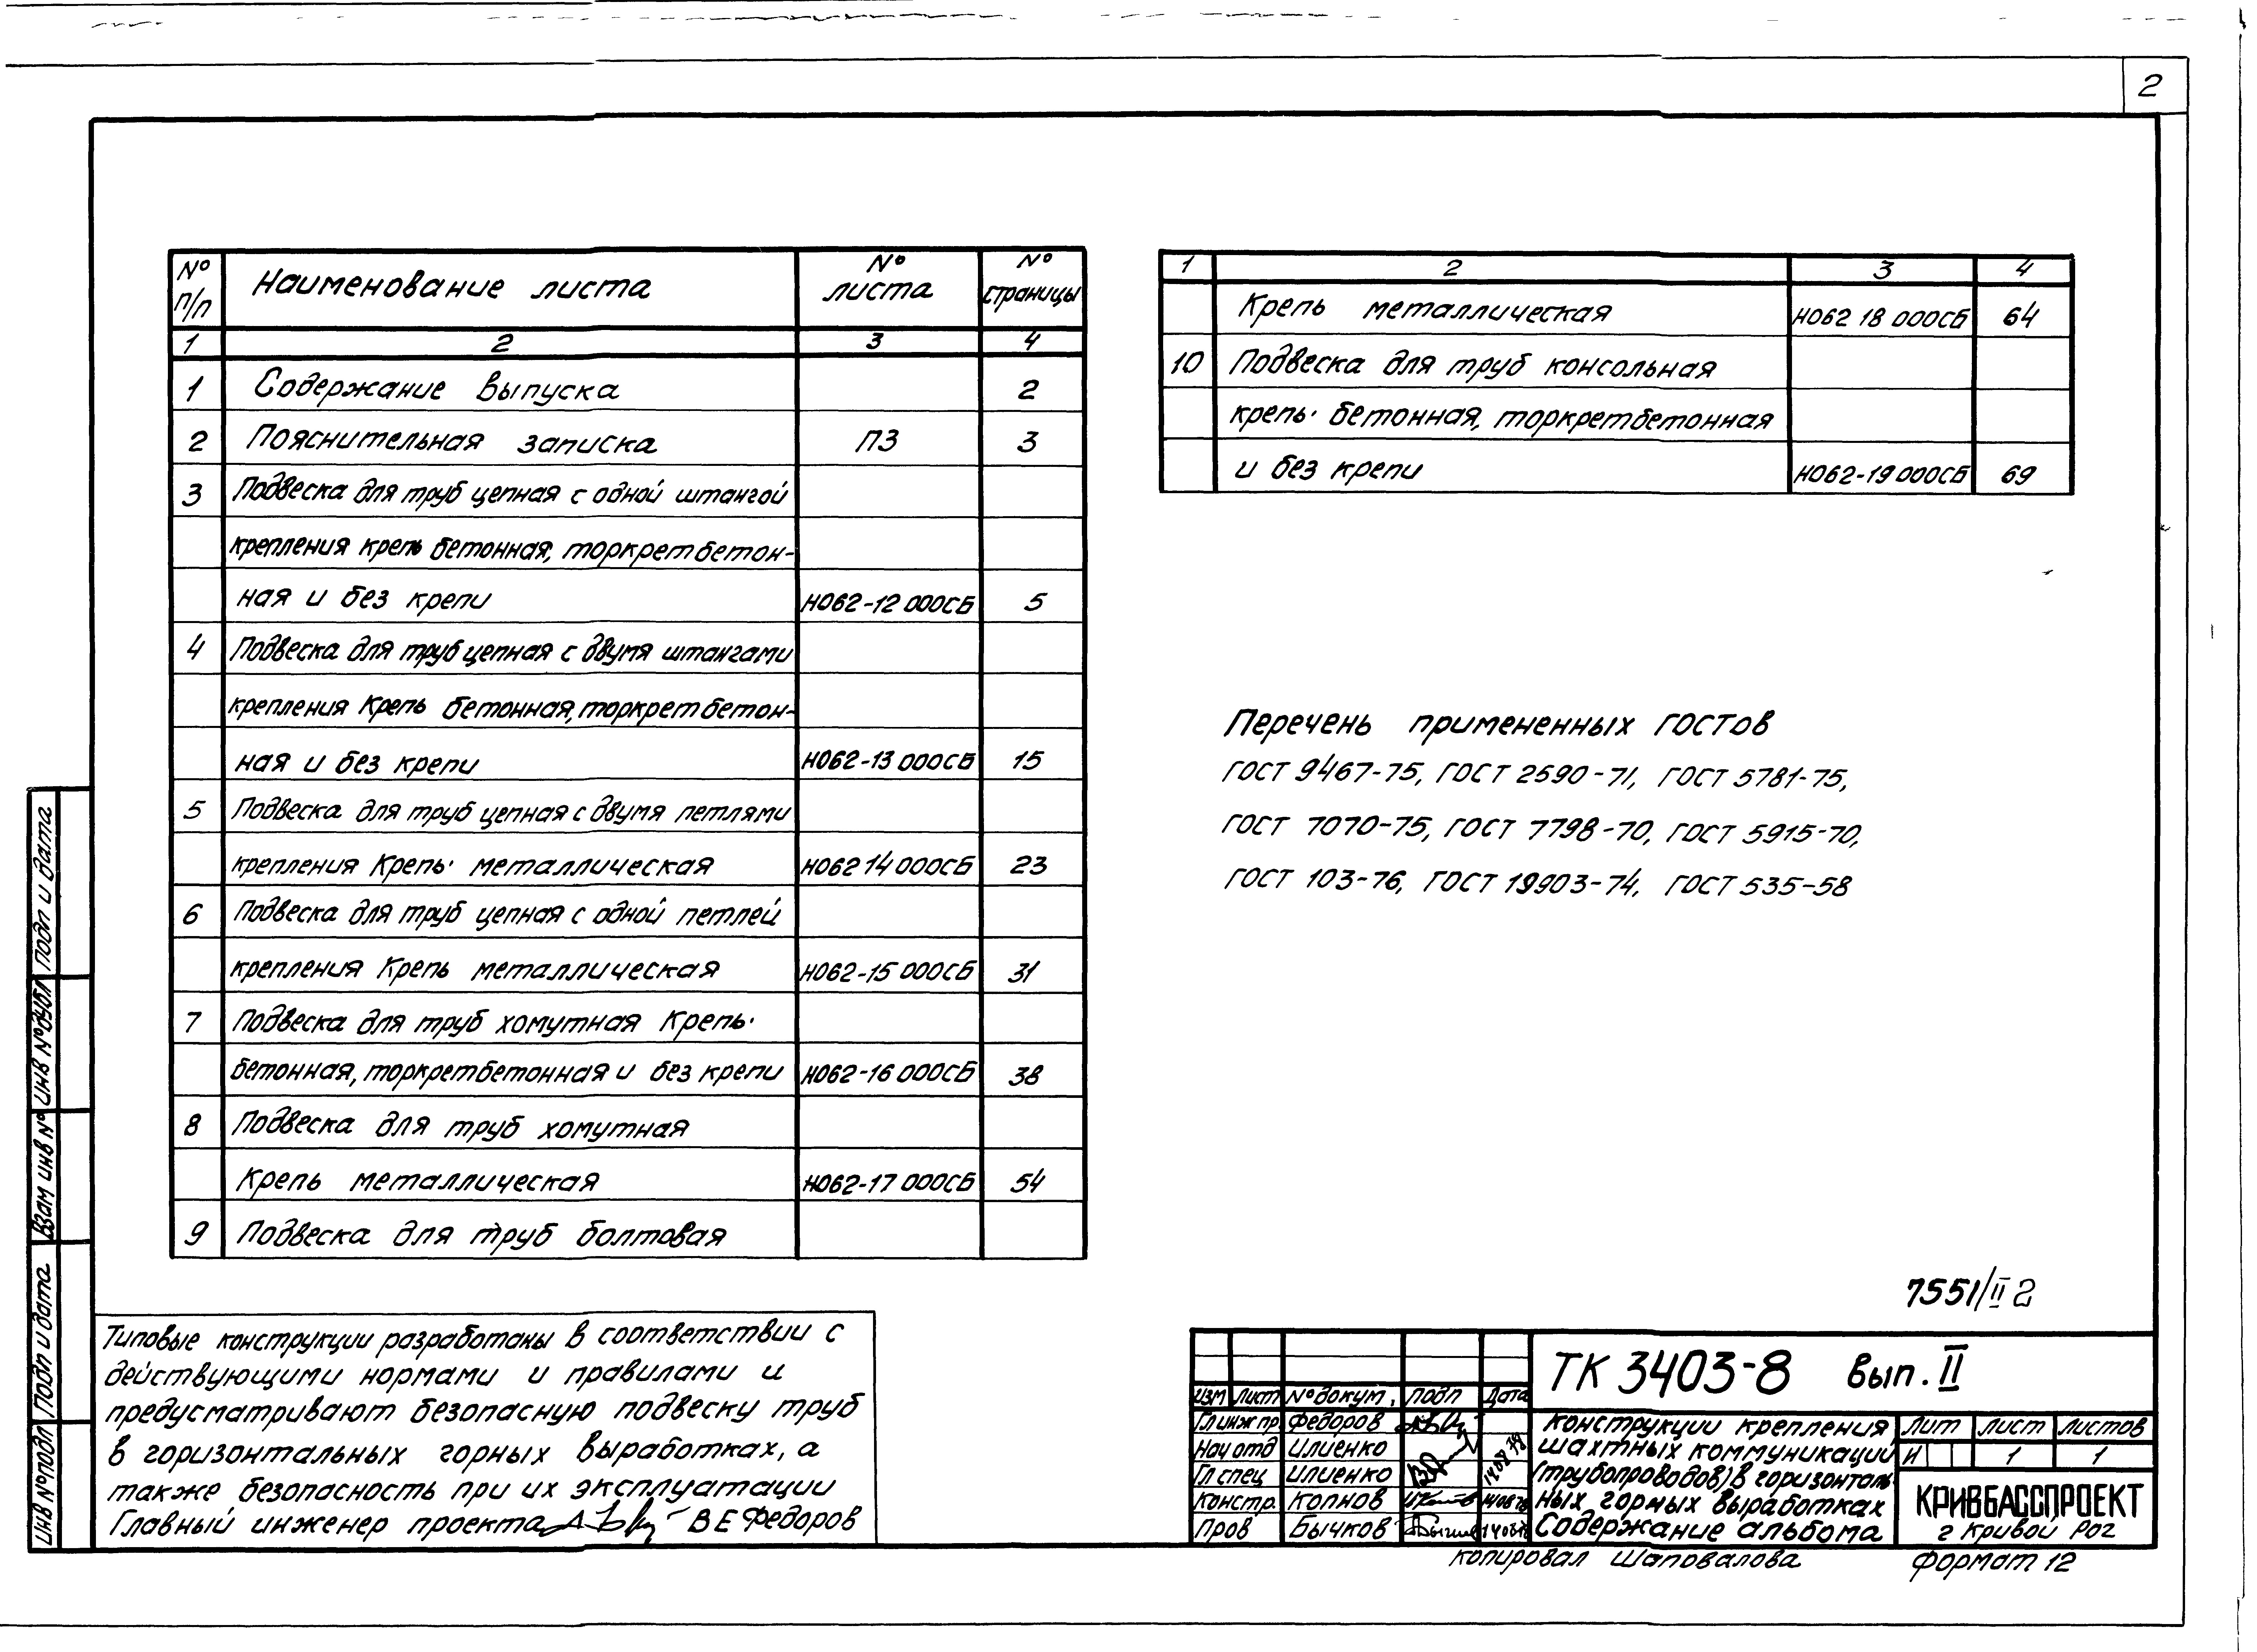 2
№ п/п Наименование листа № листа № страницы
1 2 3 4
1 Содержание выпуска 2
2 Пояснительная записка ПЗ 3
3 Подвеска для труб цепная с одной штангой
крепления крепь бетонная, торкретбетон-
ная и без крепи НО62-12 000СБ 5
4 Подвеска для труб цепная с двумя штангами
крепления Крепь бетонная, торкретбетон-
ная и без крепи НО62-13 000СБ 15
5 Подвеска для труб цепная с двумя петлями
крепления Крепь· металлическая НО62 14 000СБ 23
6 Подвеска для труб цепная с одной петлей
крепления Крепь металлическая НО62-15 000СБ 31
7 Подвеска для труб хомутная Крепь·
бетонная, торкретбетонная и без крепи НО62-16 000СБ 38
8 Подвеска для труб хомутная
Крепь металлическая НО62-17 000СБ 54
9 Подвеска для труб болтовая
1 2 3 4
Крепь металлическая НО62 18 000СБ 64
10 Подвеска для труб консольная
крепь· бетонная, торкретбетонная
и без крепи НО62-19 000СБ 69
Перечень примененных ГОСТов
ГОСТ 9467-75, ГОСТ 2590-71, ГОСТ 5781-75,
ГОСТ 7070-75, ГОСТ 7798-70, ГОСТ 5915-70,
ГОСТ 103-76, ГОСТ 19903-74, ГОСТ 535-58
Типовые конструкции разработаны в соответствии с
действующими нормами и правилами и
предусматривают безопасную подвеску труб
в горизонтальных горных выработках, а
также безопасность при их эксплуатации
Главный инженер проекта В Е Федоров
7551/II 2
ТК 3403-8 вып. II
Изм Лист № докум. Подп Дата
Гл инж пр. Федоров
Нач отд Илиенко
Гл спец Илиенко 14.08.78
Констр. Копнов 140878
Пров Бычков 140878
Конструкции крепления
шахтных коммуникаций
(трубопроводов) в горизонталь
ных горных выработках
Содержание альбома
Лит Лист Листов
И 1 1
КРИВБАССПРОЕКТ
г Кривой Рог
Копировал Шаповалова
Формат 12
Подп и дата
Инв № дубл
Взам инв №
Подп и дата
Инв № подл